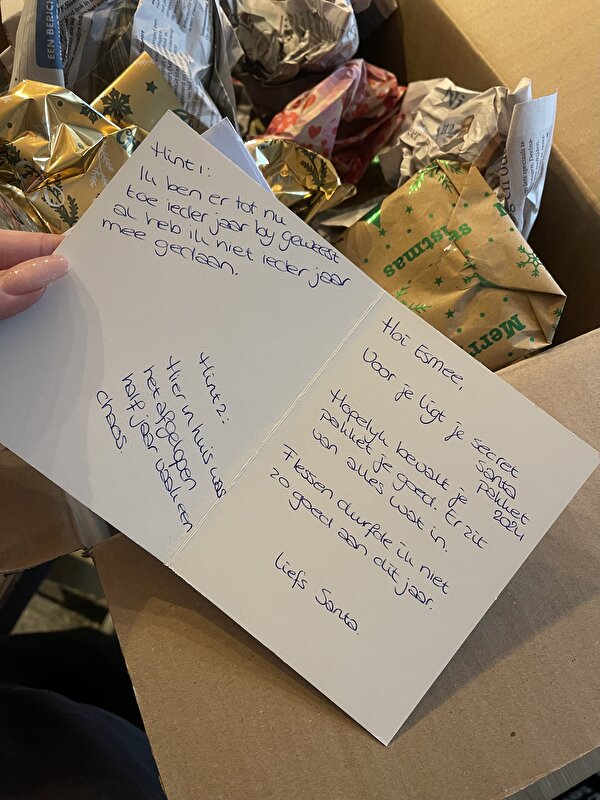 Hint 1:
Ik ben er tot nu
toe ieder jaar by geweest
al heb ik niet ieder jaar
mee gedaan.
Hint 2:
Hier in huis was
het afgelopen
half jaar vaak een
chaos.
Hoi Esmee,
Voor je ligt je secret
santa
pakket
2024
Hopelyk bevalt je
pakket je goed. Er zit
van alles wat in.
Flessen durfde ik niet
zo goed aan dit jaar.
Liefs Santa.
EEN BERICH
Merr
istmas